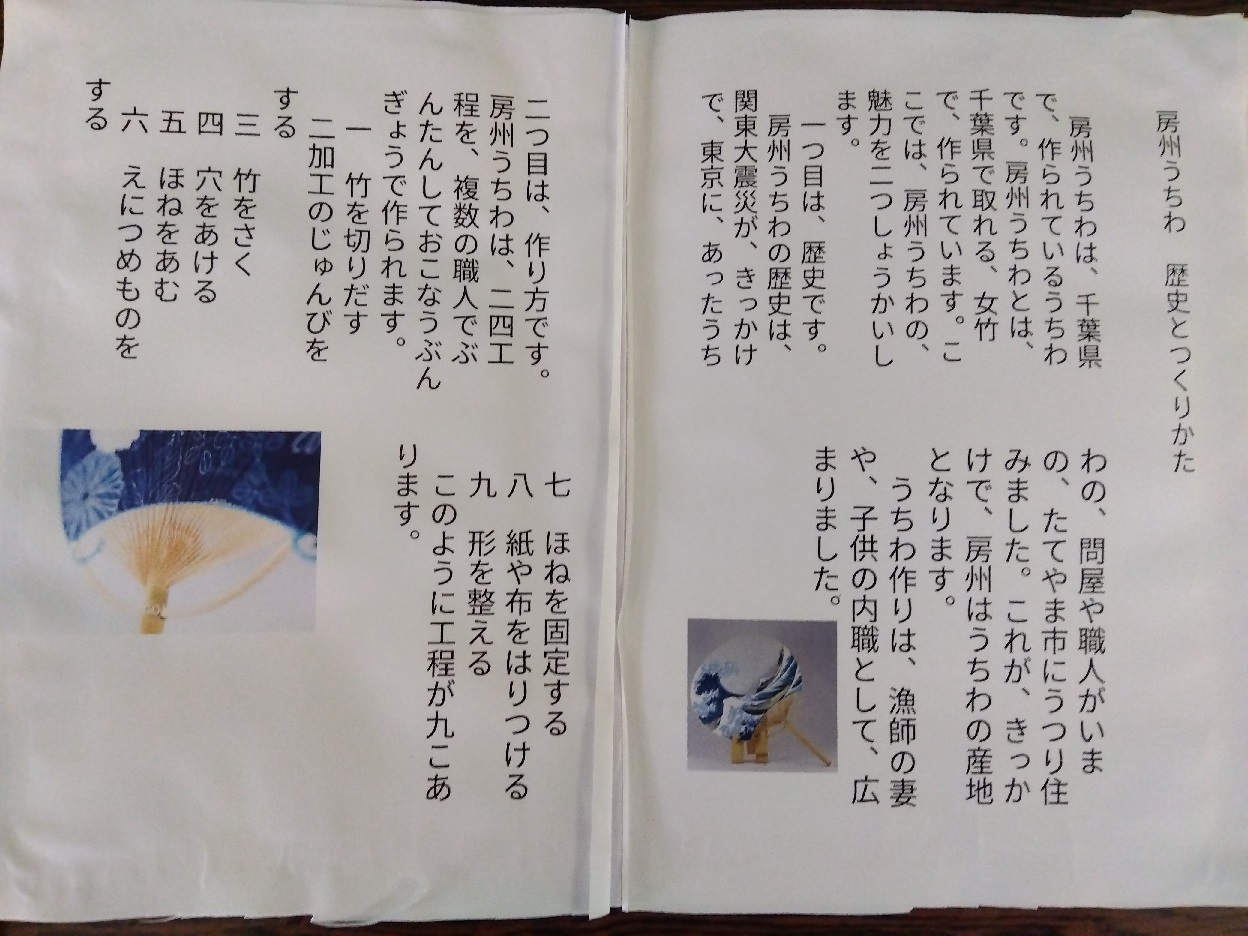 房州うちわ　歴史とつくりかた
房州うちわは、千葉県
で、作られているうちわ
です。房州うちわとは、
千葉県で取れる、女竹
で、作られています。こ
こでは、房州うちわの、
魅力を二つしょうかいし
ます。
一つ目は、歴史です。
房州うちわの歴史は、
関東大震災が、きっかけ
で、東京に、あったうち
わの、問屋や職人がいま
の、たてやま市にうつり住
みました。これが、きっか
けで、房州はうちわの産地
となります。
うちわ作りは、漁師の妻
や、子供の内職として、広
まりました。
二つ目は、作り方です。
房州うちわは、二四工
程を、複数の職人でぶ
んたんしておこなうぶん
ぎょうで作られます。
一　竹を切りだす
二加工のじゅんびを
する
三　竹をさく
四　穴をあける
五　ほねをあむ
六　えにつめものを
する
七　ほねを固定する
八　紙や布をはりつける
九　形を整える
このように工程が九こあ
ります。